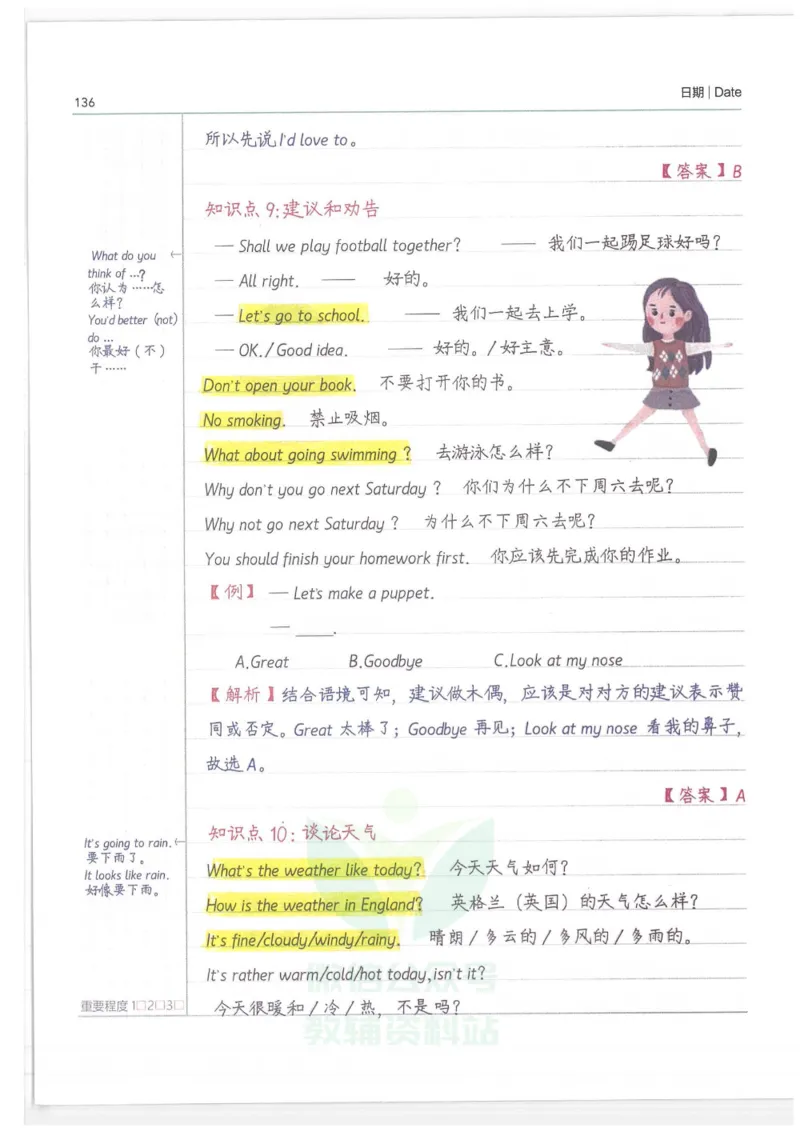 136
日期 | Date
所以先说 I'd love to。
【答案】B
知识点 9:建议和劝告
— Shall we play football together? —— 我们一起踢足球好吗?
— All right. —— 好的。
— Let's go to school. —— 我们一起去上学。
— OK. / Good idea. —— 好的。/ 好主意。
Don't open your book. 不要打开你的书。
No smoking. 禁止吸烟。
What about going swimming ? 去游泳怎么样?
Why don't you go next Saturday ? 你们为什么不下周六去呢?
Why not go next Saturday ? 为什么不下周六去呢?
You should finish your homework first. 你应该先完成你的作业。
【例】 — Let's make a puppet.
— ____.
A.Great B.Goodbye C.Look at my nose
【解析】结合语境可知，建议做木偶，应该是对对方的建议表示赞
同或否定。Great 太棒了；Goodbye 再见；Look at my nose 看我的鼻子，
故选 A。
【答案】A
知识点 10: 谈论天气
What's the weather like today? 今天天气如何?
How is the weather in England? 英格兰（英国）的天气怎么样?
It's fine/cloudy/windy/rainy. 晴朗 / 多云的 / 多风的 / 多雨的。
It's rather warm/cold/hot today,isn't it?
今天很暖和 / 冷 / 热，不是吗?
What do you ←
think of ...?
你认为 ……怎
么样?
You'd better (not)
do ...
你最好 ( 不 )
干 ……
It's going to rain. ←
要下雨了。
It looks like rain.
好像要下雨。
重要程度 1□2□3□
微信公众号
教辅资料站